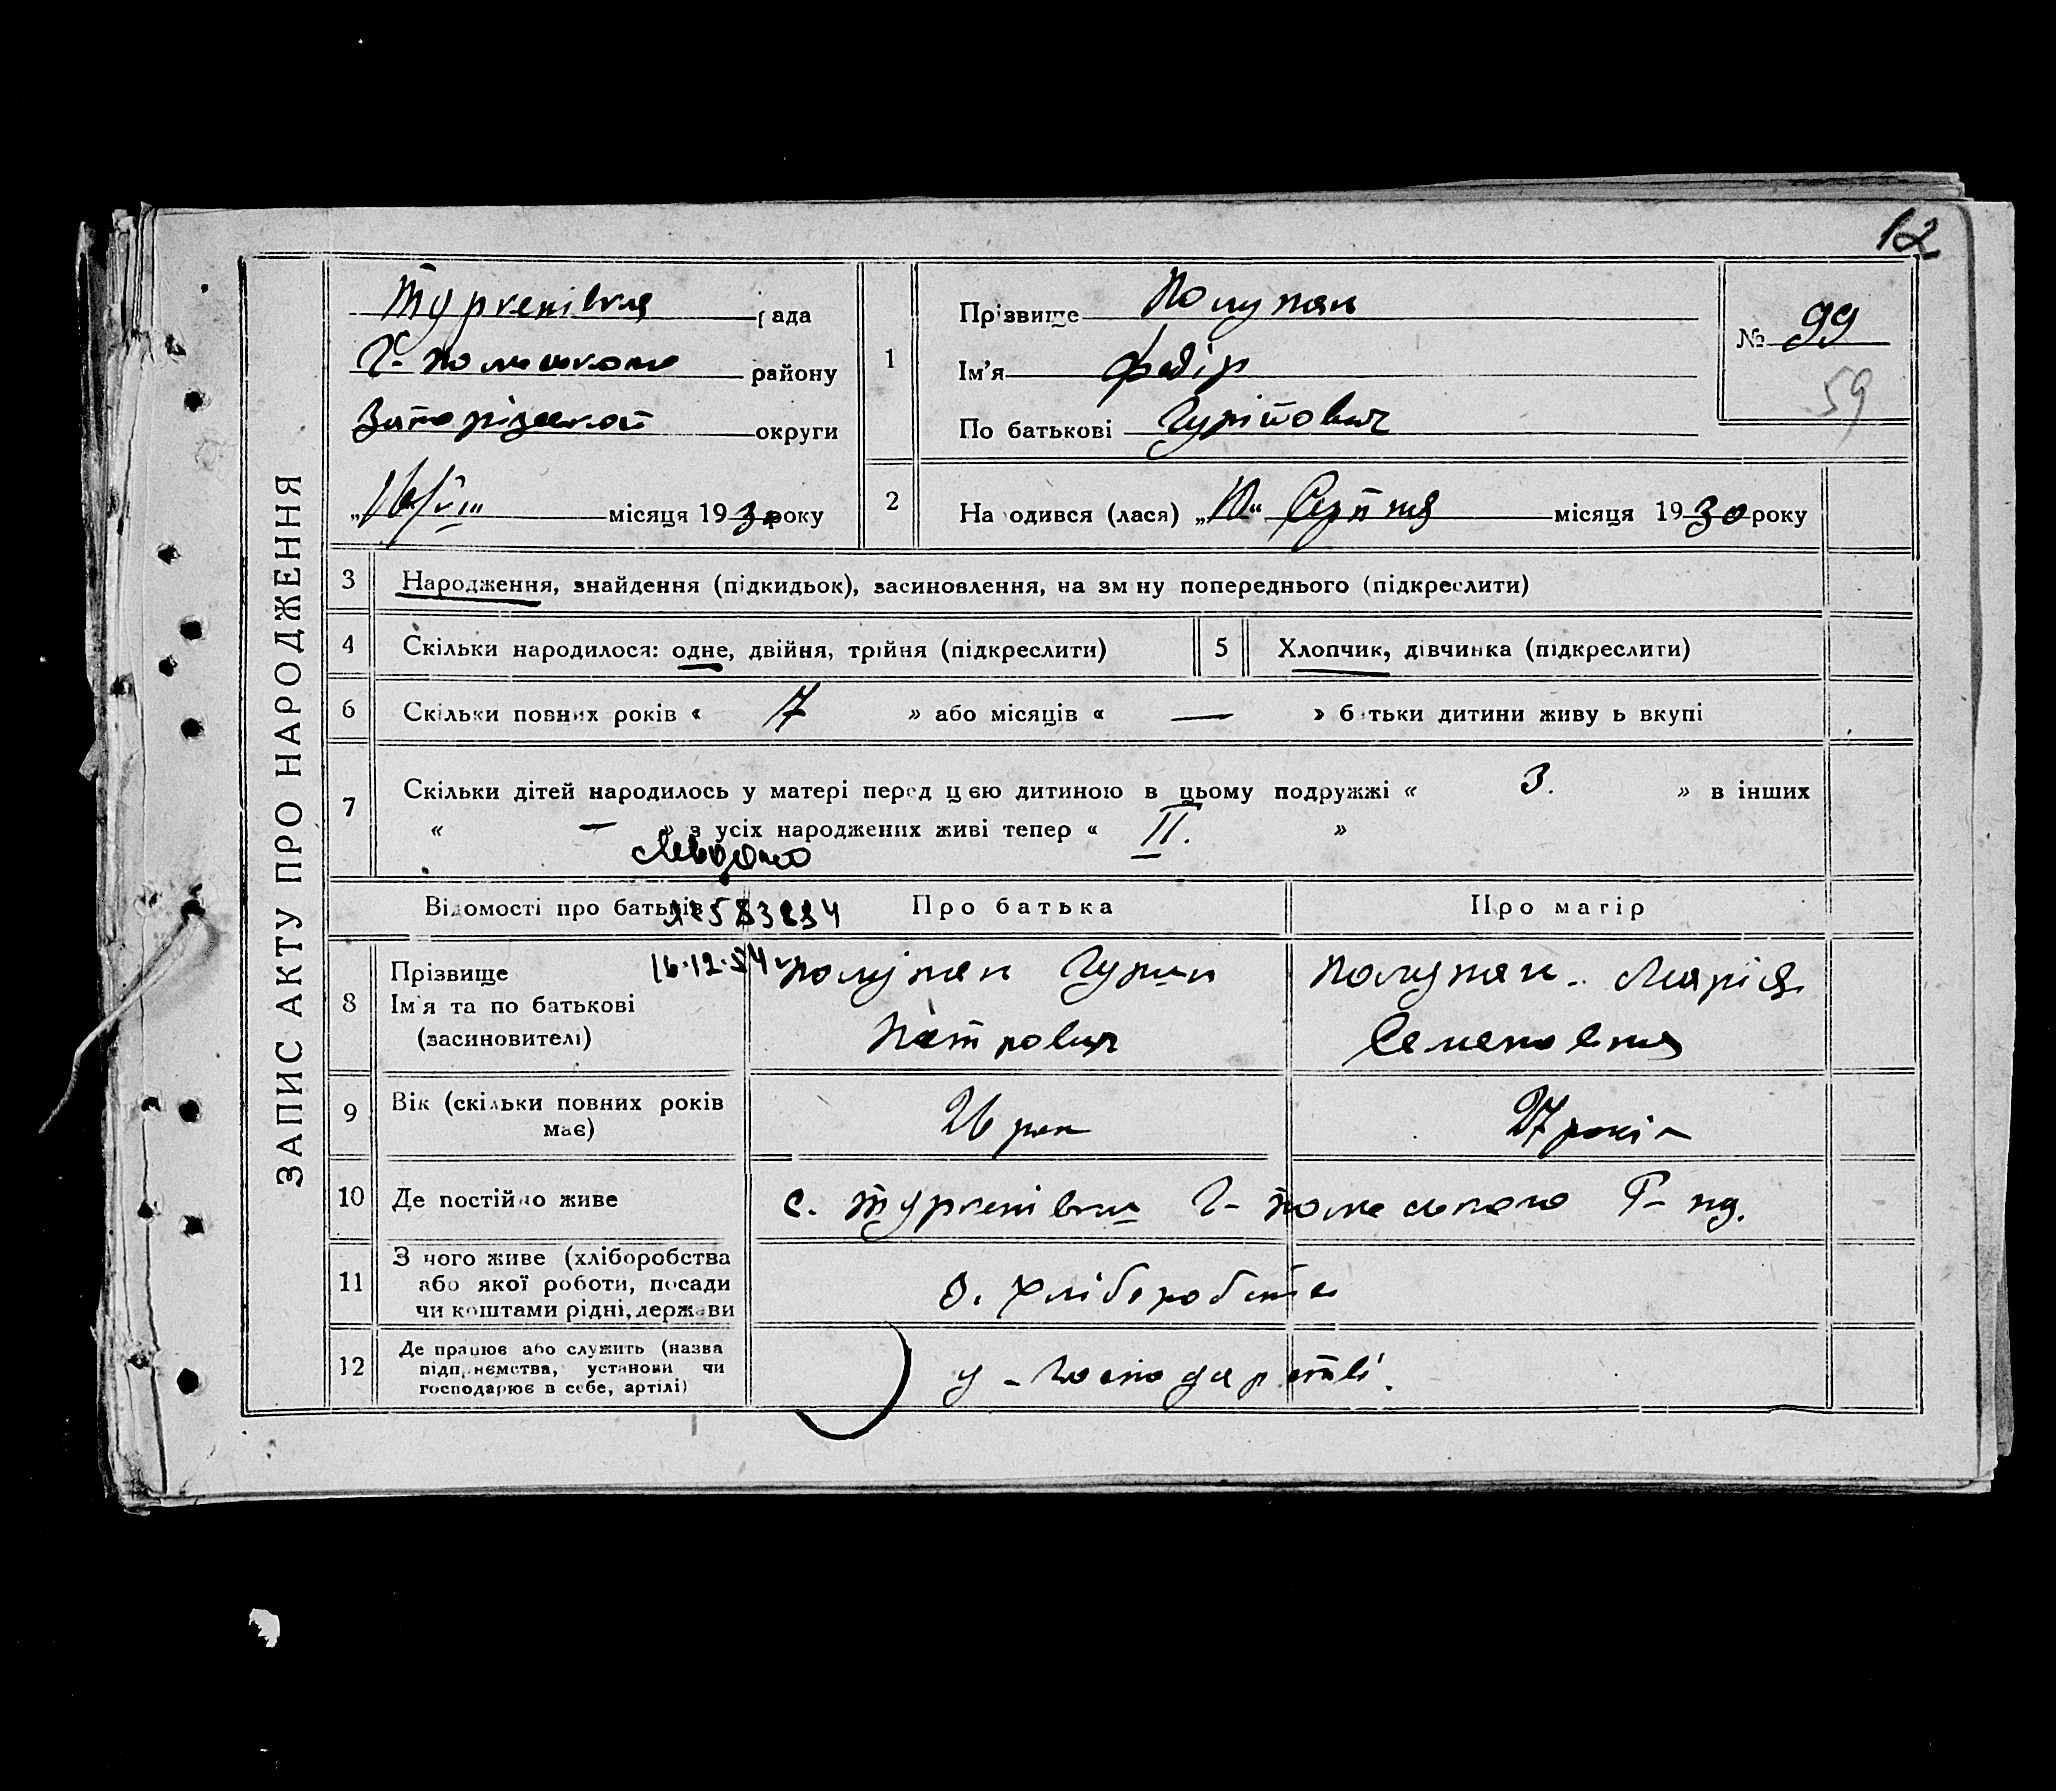 12
ЗАПИС АКТУ ПРО НАРОДЖЕННЯ
Тургенівка рада
Г-польського району
Запорізької округи
„16/VIII місяця 1930 року
1
Прізвище Полупан
Ім'я Федір
По батькові Гурійович
№ 99
59
2
Народився (лася) „10“ Серпня місяця 1930 року
3 Народження, знайдення (підкидьок), засиновлення, на зміну попереднього (підкреслити)
4 Скільки народилося: одне, двійня, трійня (підкреслити) 5 Хлопчик, дівчинка (підкреслити)
6 Скільки повних років « 7 » або місяців « — » батьки дитини живуть вкупі
7 Скільки дітей народилось у матері перед цією дитиною в цьому подружжі « 3. » в інших
« — » з усіх народжених живі тепер « II. »
Відомості про батьків Про батька Про матір
16.12.54
8 Прізвище
Ім'я та по батькові
(засиновителі)
Полупан Гурий
Петрович
Полупан Марія
Семеновна
9 Вік (скільки повних років
має)
26 рок
27 років
10 Де постійно живе с. Тургенівка Г-польського
11 З чого живе (хліборобства
або якої роботи, посади
чи коштами рідні, держави
з. хліборобства
12 Де працює або служить (назва
підприємства, установи чи
господарює в себе, артілі)
у - господарстві.